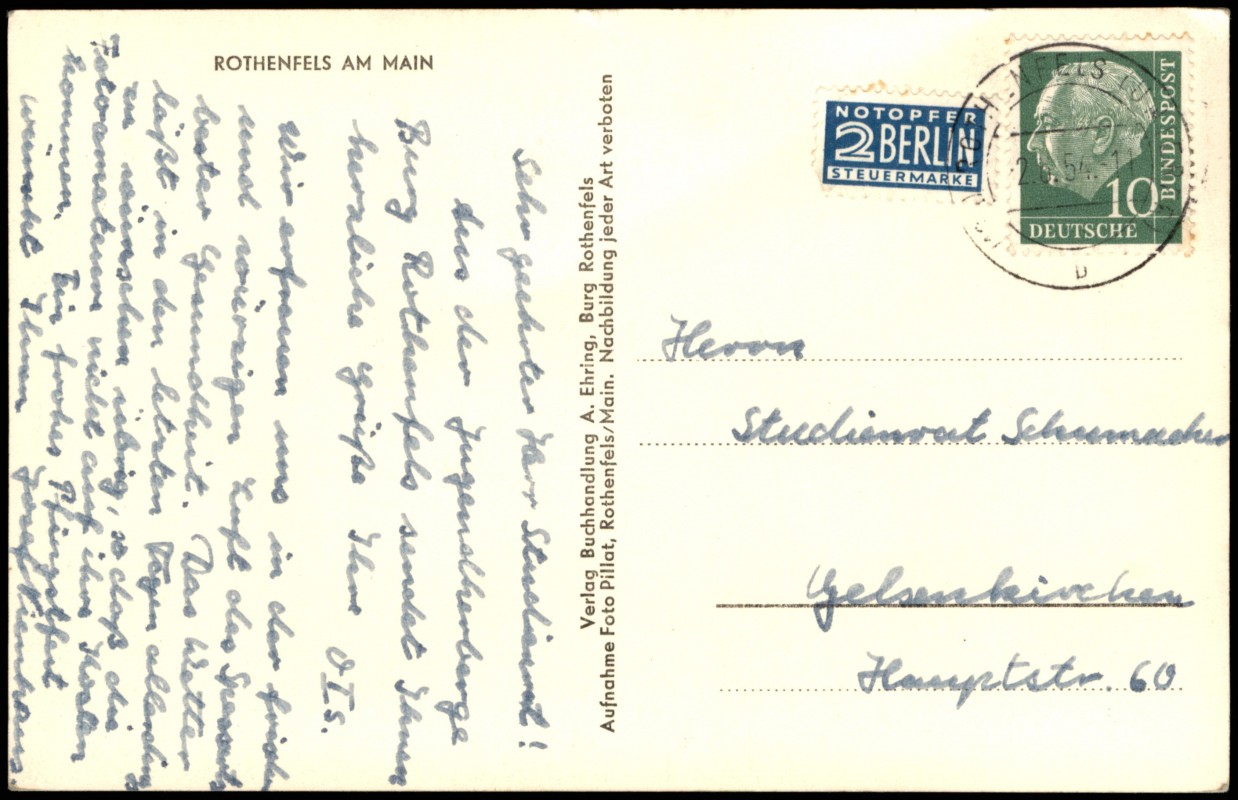 ROTHENFELS AM MAIN
Sehr geehrter Herr Studienrat!
Aus der Jugendherberge
Burg Rothenfels sendet Ihnen
herzliche Grüße Ihre O I s.
Wir erfreuen uns in der frischen
und würzigen Luft des Spessarts
bester Gesundheit. Das Wetter
läßt in den letzten Tagen allerdings
zu wünschen übrig, so daß die
Fotomatume nicht auf ihre Kosten
kommen. Ein frohes Pfingstfest
wünscht Ihnen Josef
Verlag Buchhandlung A. Ehring, Burg Rothenfels
Aufnahme Foto Pillat, Rothenfels/Main. Nachbildung jeder Art verboten
NOTOPFER
2 BERLIN
STEUERMARKE
ROTHENFELS
2.6.54
b
10
DEUTSCHE
BUNDESPOST
Herrn
Studienrat Schumacher
Gelsenkirchen
Hauptstr. 60